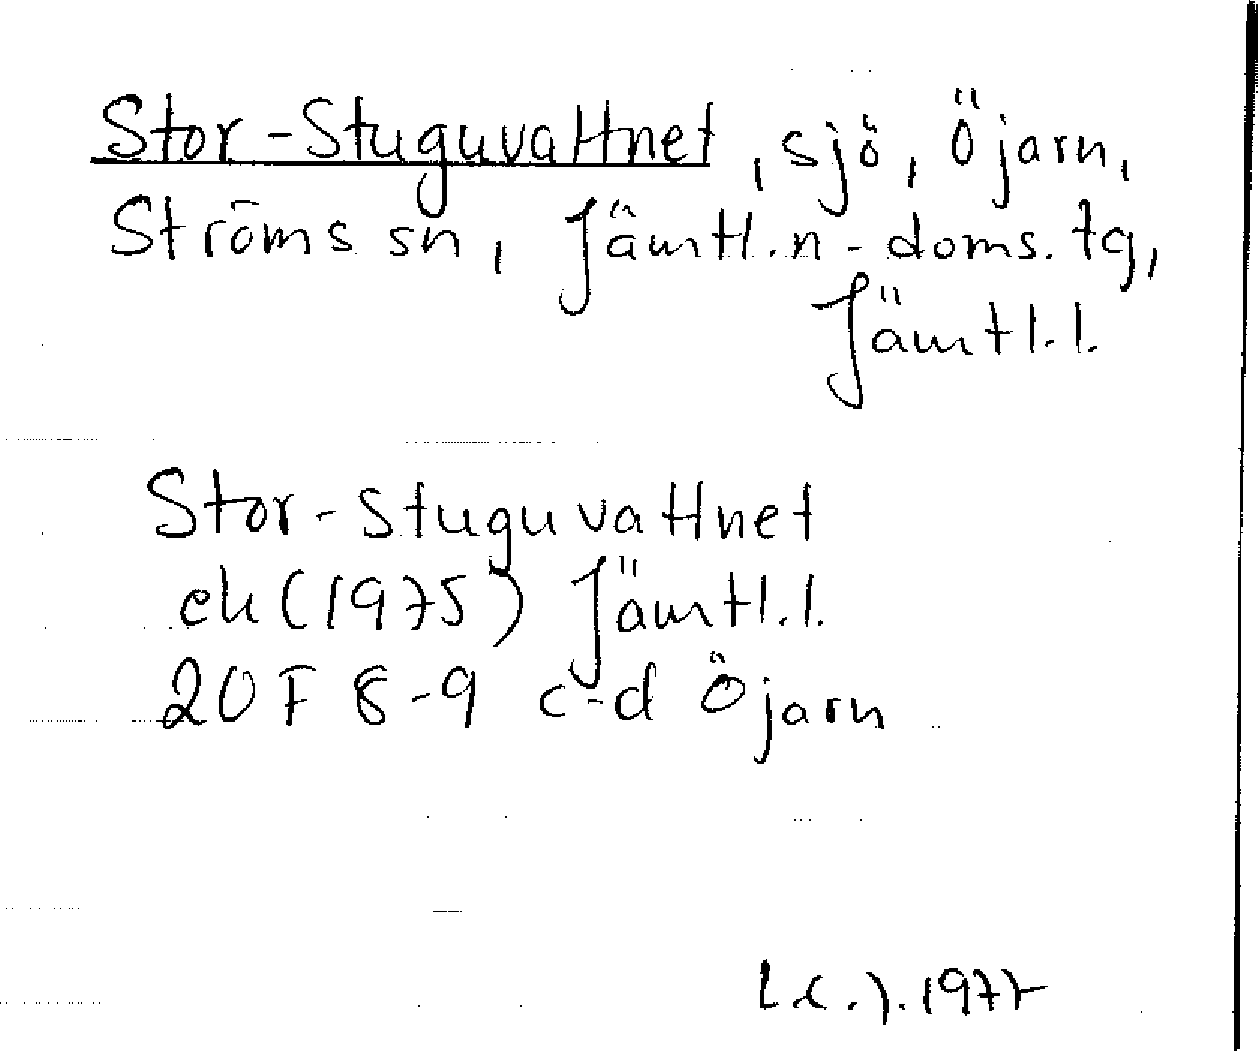 Stor-Stuguvattnet, sjö, Öjarn,
Ströms sn, Jämtl. n-doms. tg,
Jämtl.l.
Stor-stuguvattnet
ek (1975) Jämtl.l.
20F 8-9 c-d Öjarn
1977